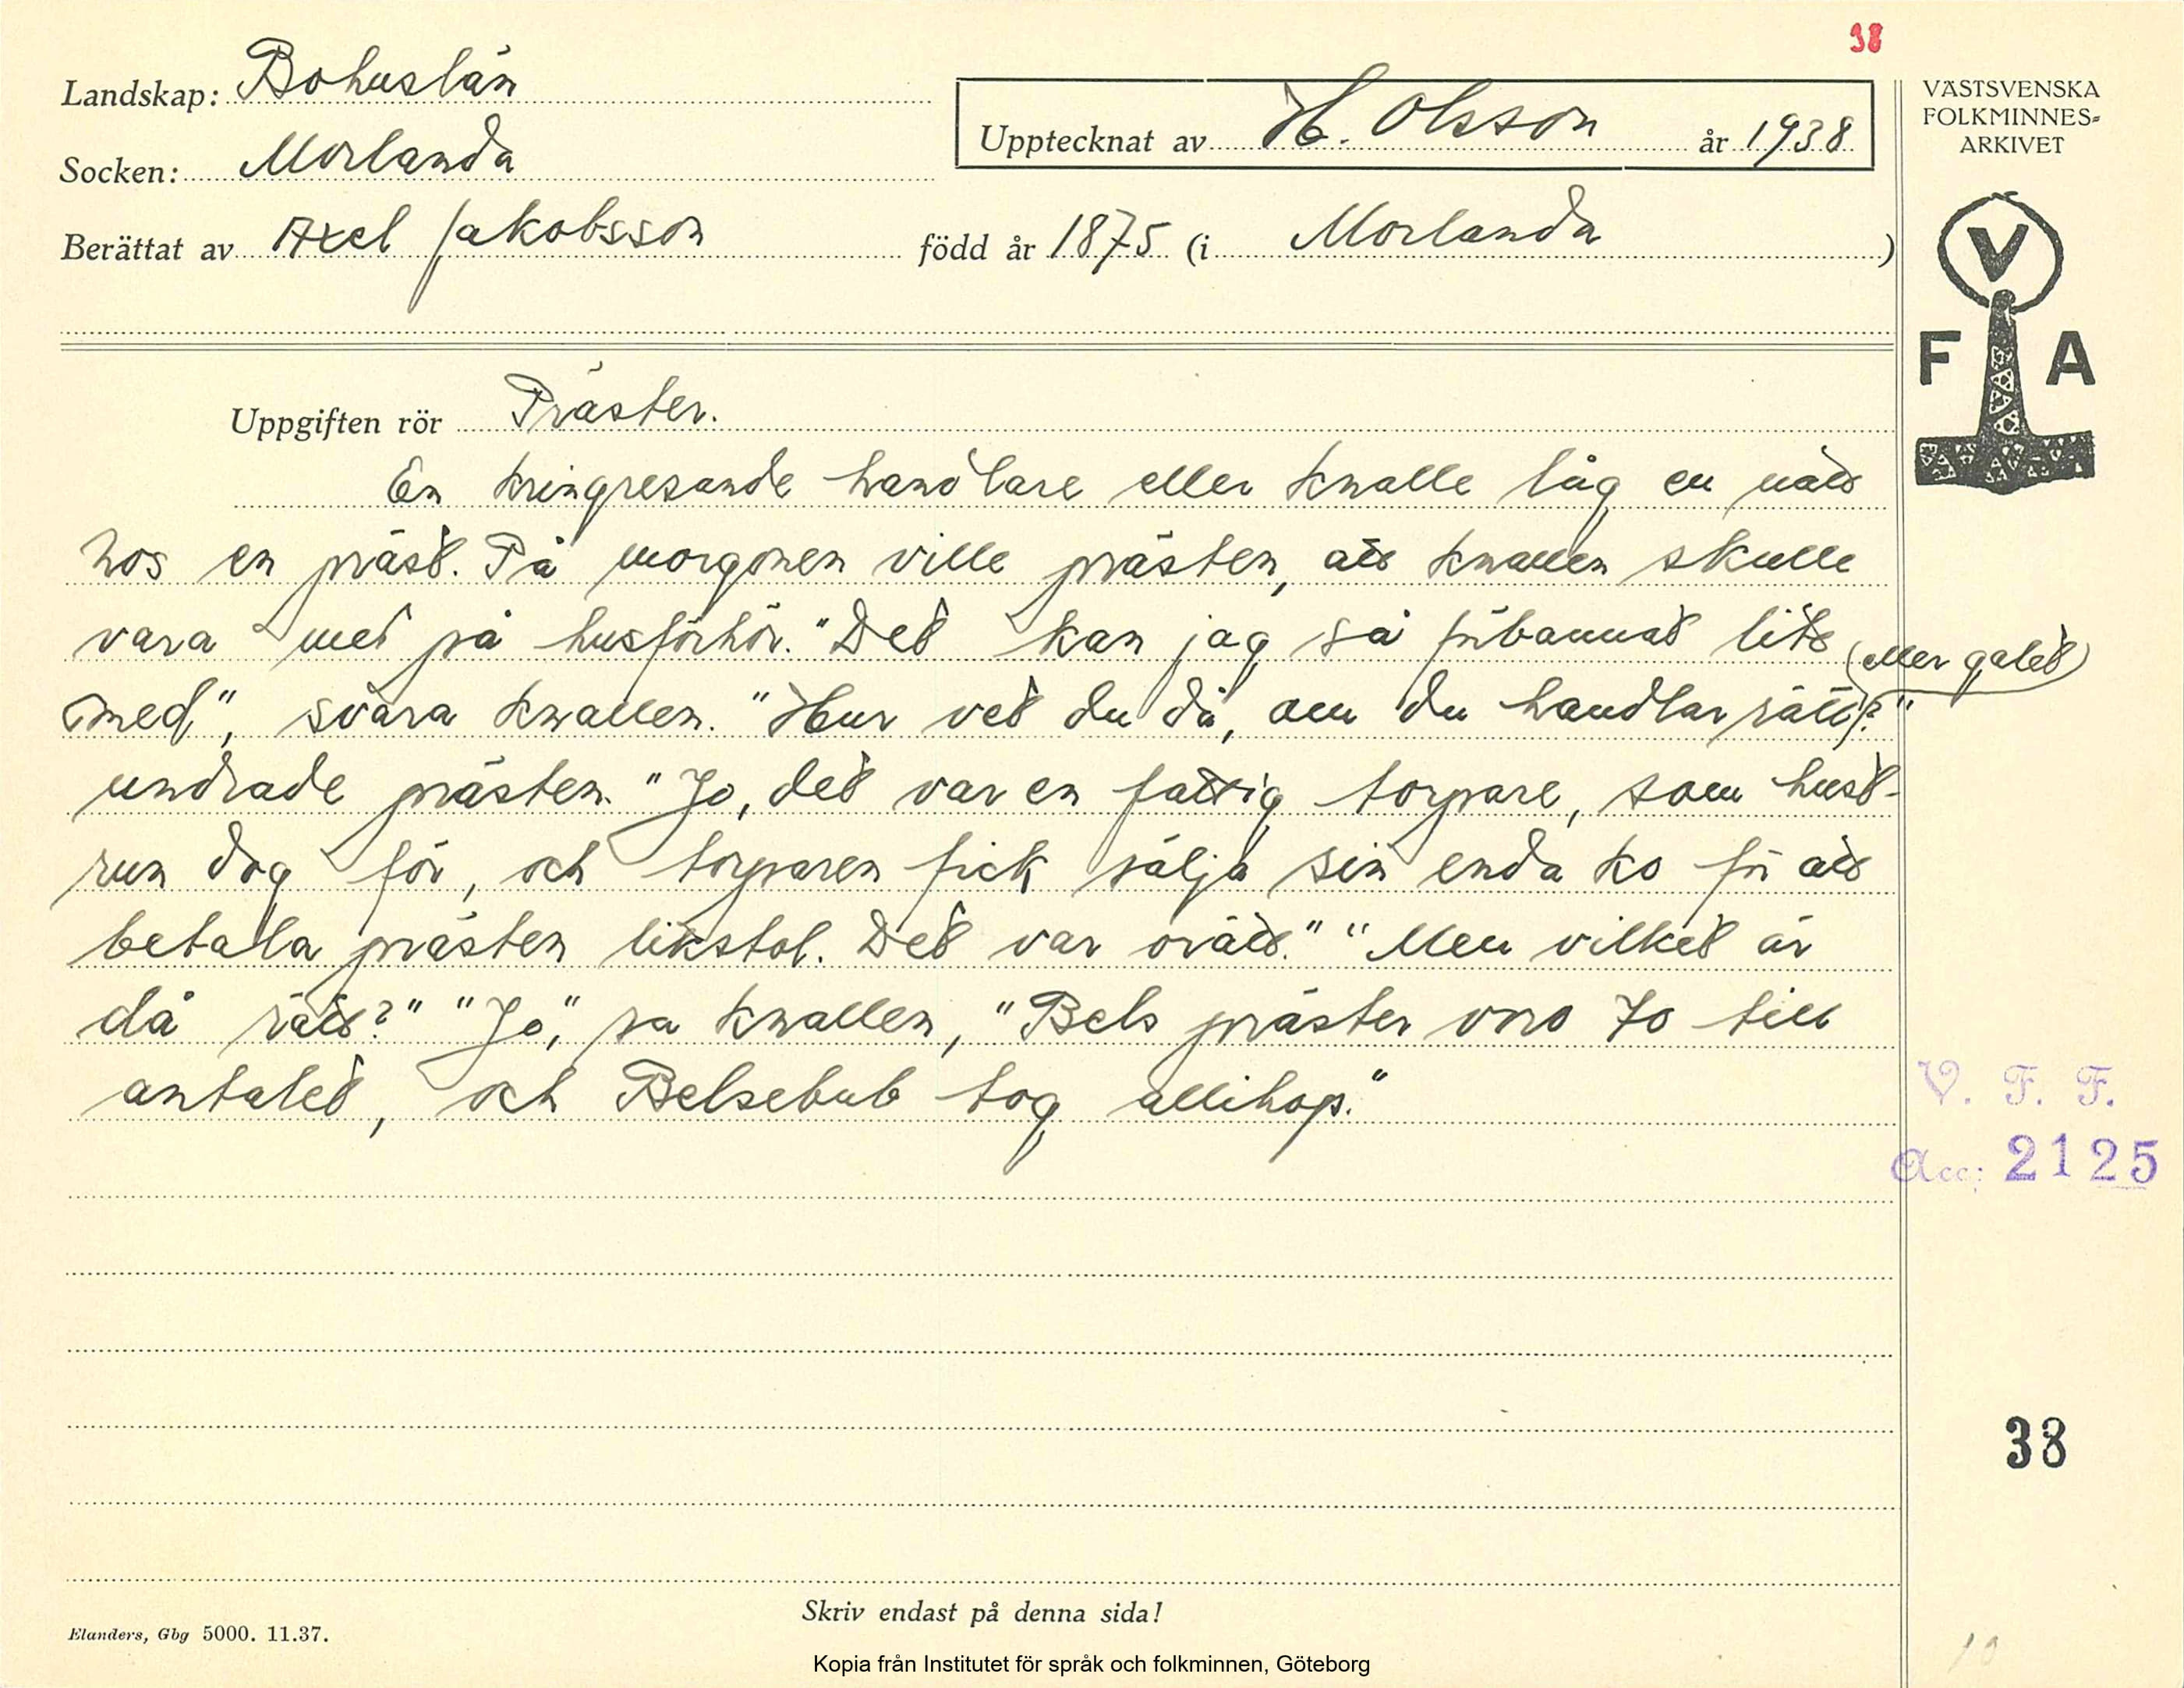 38
Landskap: Bohuslän
Socken: Morlanda
Upptecknat av H. Olsson år 1938
Berättat av Axel Jakobsson född år 1875 (i Morlanda)
VÄSTSVENSKA
FOLKMINNES-
ARKIVET
V
F A
Uppgiften rör Präster.
En kringresande handlare eller knalle låg en natt
hos en präst. På morgonen ville prästen, att knallen skulle
vara med på husförhör. "Det kan jag så förbannat litt
(eller galet)
med", svara knallen. "Hur vet du då, om du handlar rätt?"
undrade prästen. "Jo, det var en fattig torpare, som hust-
run dog för, och torparen fick sälja sin enda ko för att
betala prästen likstol. Det var orätt." "Men vilket är
då rätt?" "Jo," sa knallen, "Bels präster voro 70 till
antalet, och Belsebub tog allihop."
V. F. F.
Acc: 2125
38
Skriv endast på denna sida!
Elanders, Gbg 5000. 11.37.
Kopia från Institutet för språk och folkminnen, Göteborg